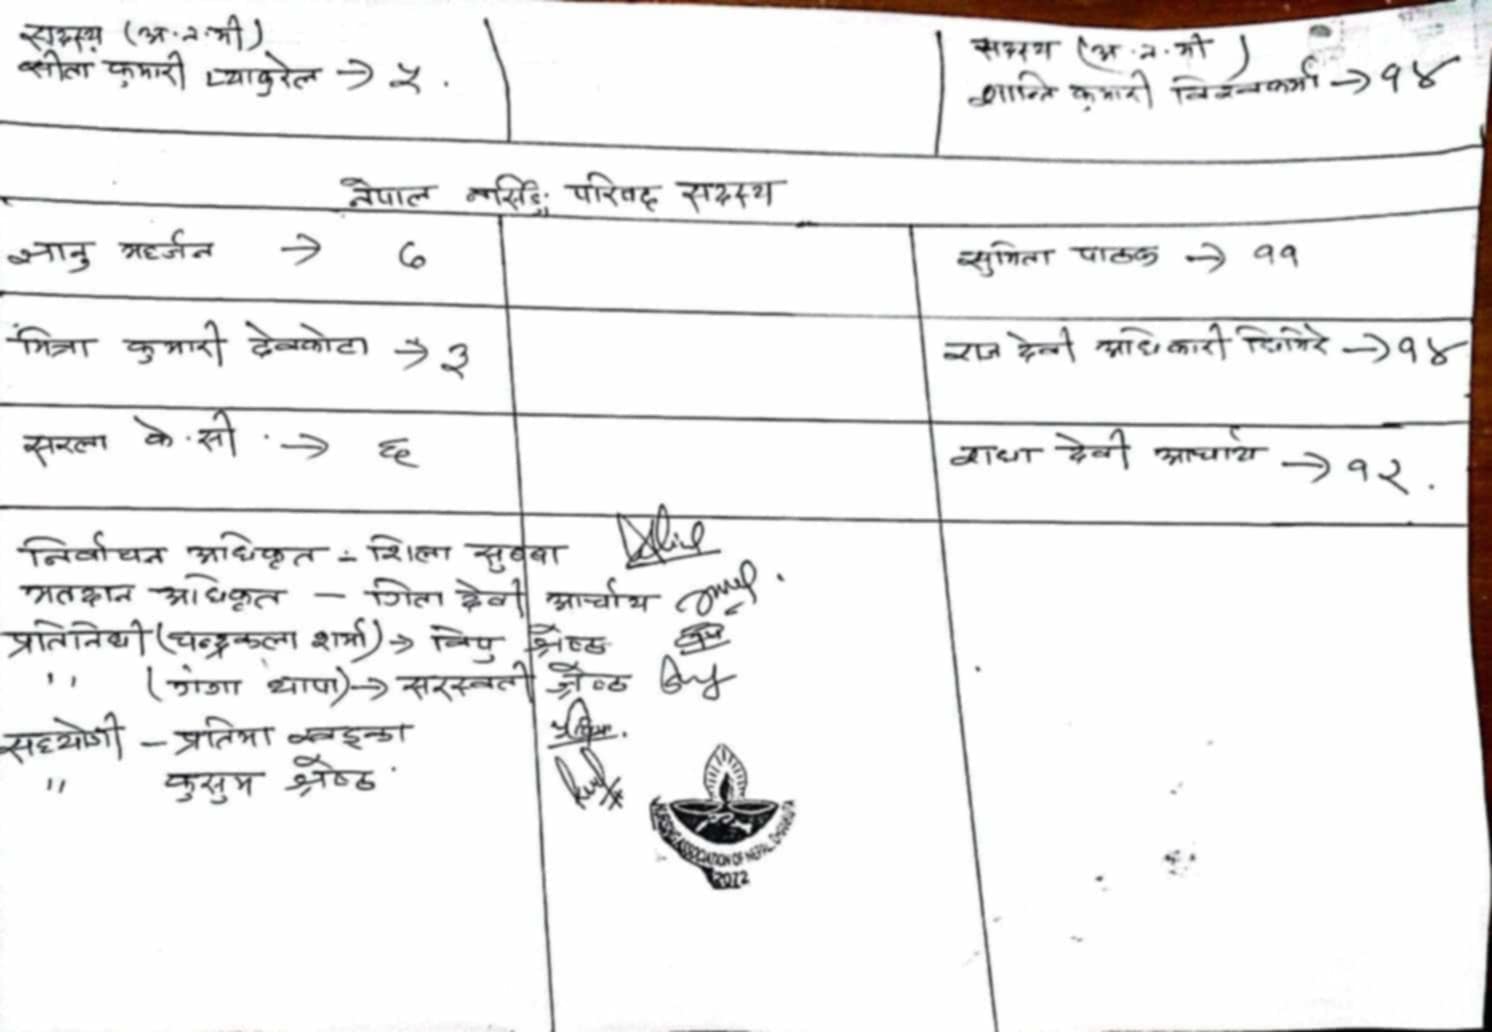 सदस्य (अ.न.मी)
सीता कुमारी प्याकुरेल → ५.
सदस्य (अ.न.मी)
शान्ति कुमारी विश्वकर्मा → १४
नेपाल नर्सिङ परिषद सदस्य
भानु महर्जन → ७
सुमिता पाठक → ११
मित्रा कुमारी देवकोटा → ३
राज देवी अधिकारी घिमिरे → १४
सरला के.सी. → ६
राधा देवी आचार्य → १२.
निर्वाचन अधिकृत - शिला सुब्बा
मतदान अधिकृत - गिता देवी आर्चाय
प्रतिनिधी (चन्द्रकला शर्मा) → विपु श्रेष्ठ
" (गंगा थापा) → सरस्वती श्रेष्ठ
सहयोगी - प्रतिमा खड्का
" कुसुम श्रेष्ठ
NURSING ASSOCIATION OF NEPAL
2022